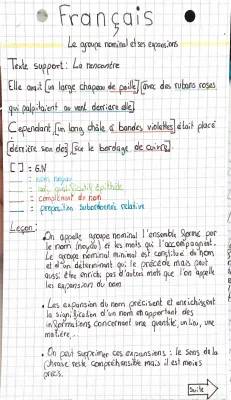 Français
Le groupe nominal et ses expansions
Texte support: La rencontre
Elle avait [un large chapeau de paille] [avec des rubans roses
qui palpitaient au vent derrière elle]
Cependant, [un long châle à bandes violettes] était placé
[derrière son dos] [sur le bordage de cuivre].
[ ] = G.N
= nom noyau
= adj qualificatif épithète
= complément du nom
= proposition subordonnée relative
Leçon:
• On appelle groupe nominal l'ensemble formé par
le nom (noyau) et les mots qui l'accompagnent.
Le groupe nominal minimal est constitué du nom
et d'un déterminant qui le précède mais peut
aussi être enrichi par d'autres mots que l'on appelle
les expansions du nom
• Les expansions du nom précisent et enrichissent
la signification d'un nom en apportant des
informations concernant une quantité, un lieu, une
matière...
• On peut supprimer ces expansions: le sens de la
phrase reste compréhensible mais il est moins
précis.
Suite